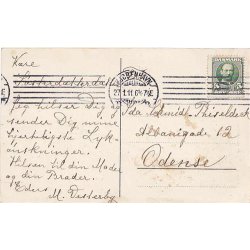 Kære
Jeg hilser Dig og
sender Dig mine
hjerteligste Lyk-
ønskninger.
Hilsen til din Moder
og din Broder.
Eders
M.
DANMARK
27.1.11
Ida Schmidt-Phiseldeck
Albanigade
Odense